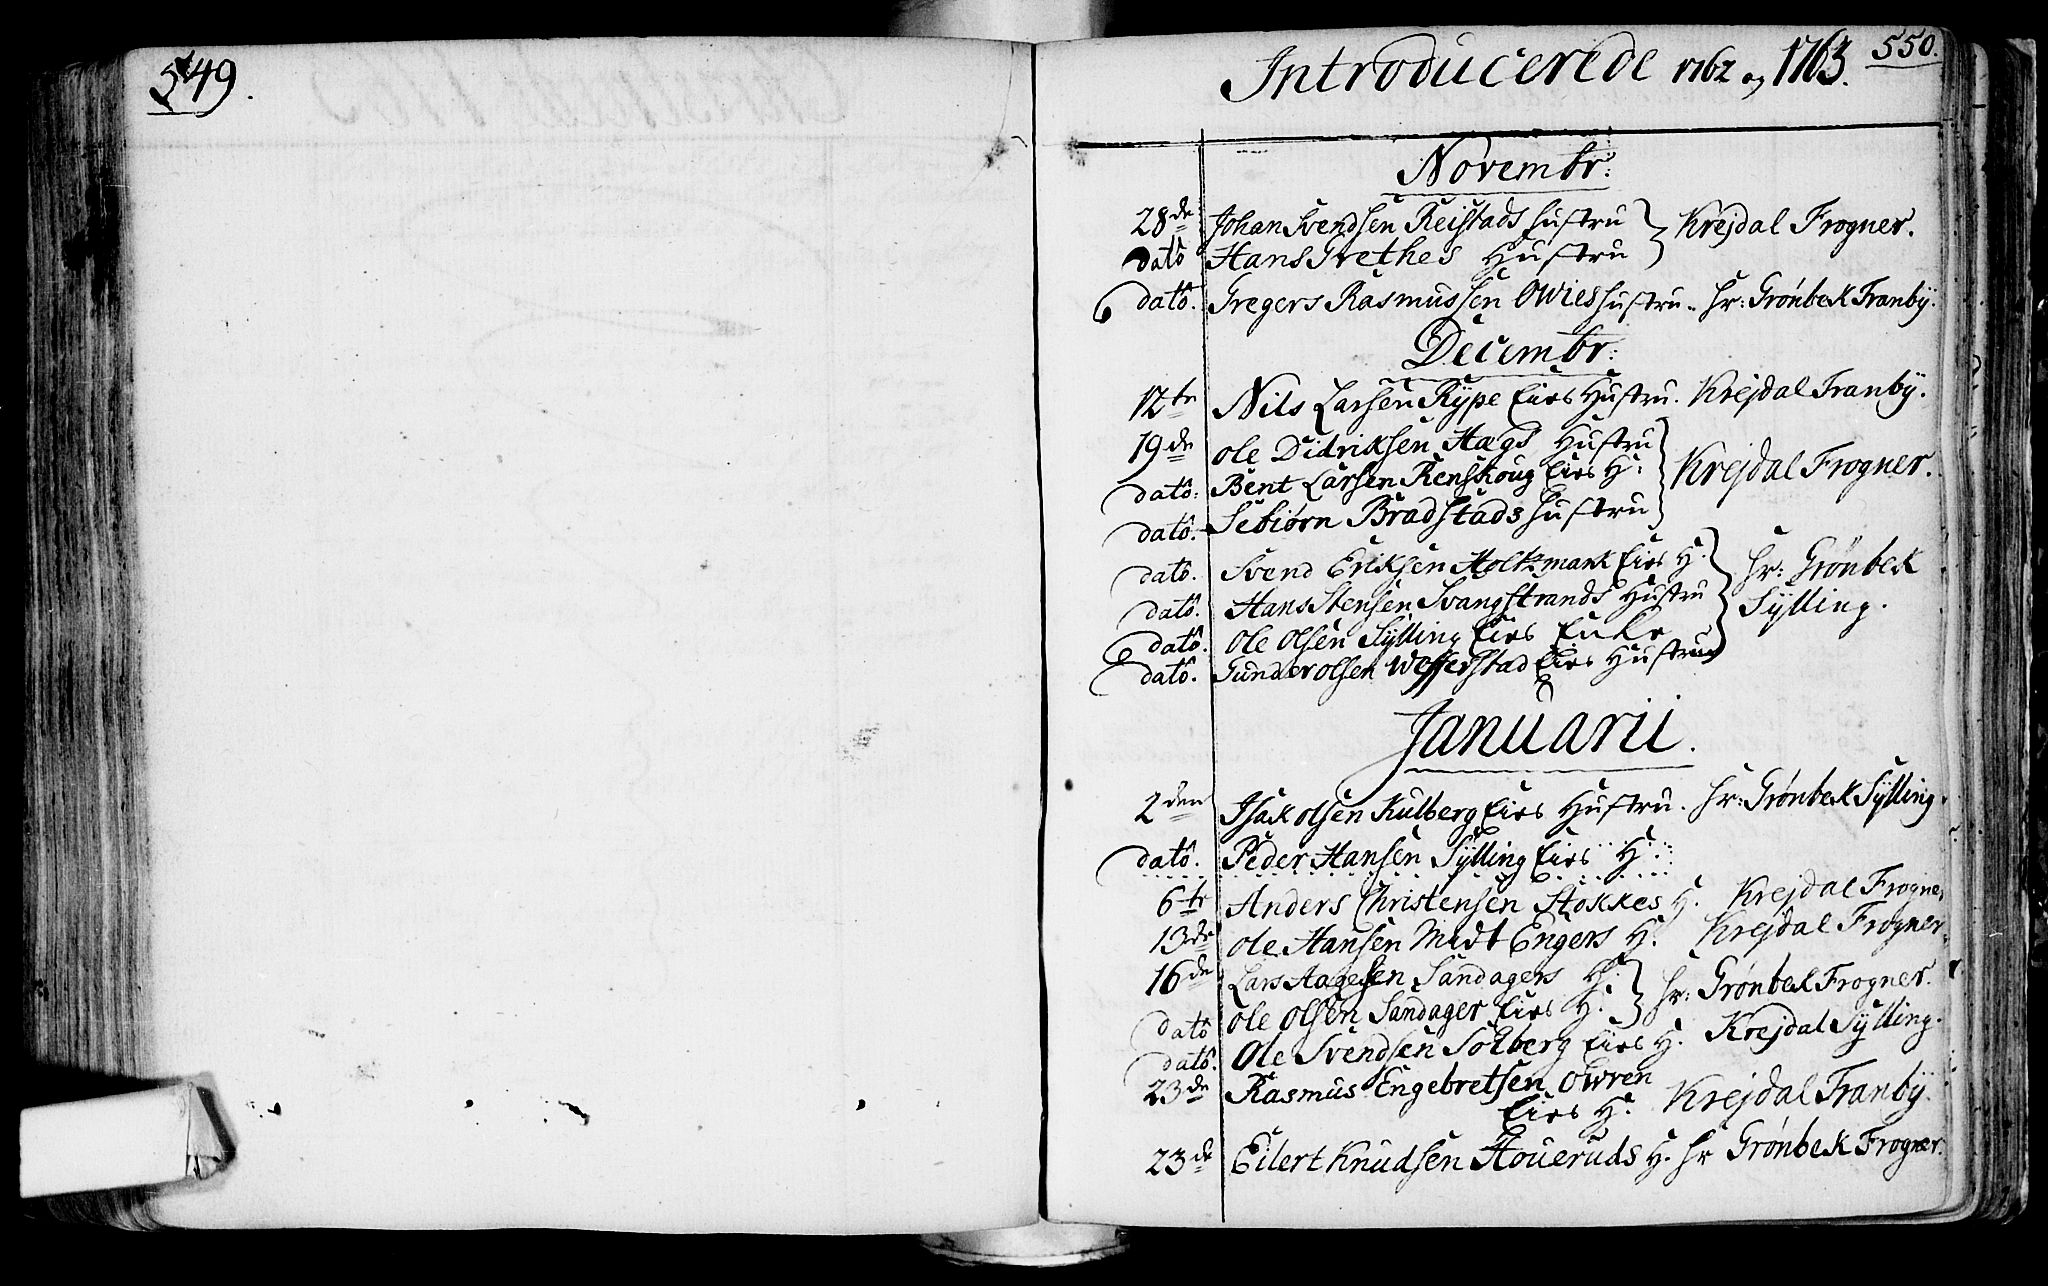 549.
Introducerede 1762 og 1763.
550.
Novembr:
28de Johan Svendsen Reistads Hustru } Krejdal Frogner.
dato Hans Grethes Hustru
dato. Gregers Rasmussen Owies Hustru .. Hr: Grønbek Tranby.
Decembr:
12te Nils Larsen Rype Eies Hustru. Krejdal Tranby.
19de Ole Didriksen Hægs Hustru
dato: Bent Larsen Renskoug Eies H: } Krejdal Frogner.
dato. Sebiørn Bradstads Hustru
dato. Svend Eriksen Holtzmark Eies H. } Hr: Grønbek
dato. Hans Stensen Svangstrands Hustru Sylling.
dato. Ole Olsen Sylling Eies Enke
dato. Gunder Olsen Wefferstad Eies Hustru
Januarii.
2den Isak Olsen Kulberg Eies Hustru. Hr: Grønbek Sylling.
dato. Peder Hansen Sylling Eies H.
6te Anders Christensen Stokkes H. Krejdal Frogner
13de Ole Hansen Midt Engers H. Krejdal Frogner.
16de Lars Aagesen Sandagers H. } Hr: Grønbek Frogner.
dato Ole Olsen Sandager Eies H.
dato. Ole Svendsen Solberg Eies H. Krejdal Sylling.
23de Rasmus Engebretsen Owren
Eies H. Krejdal Tranby.
23de Eilert Knudsen Houeruds H. Hr Grønbek Frogner.